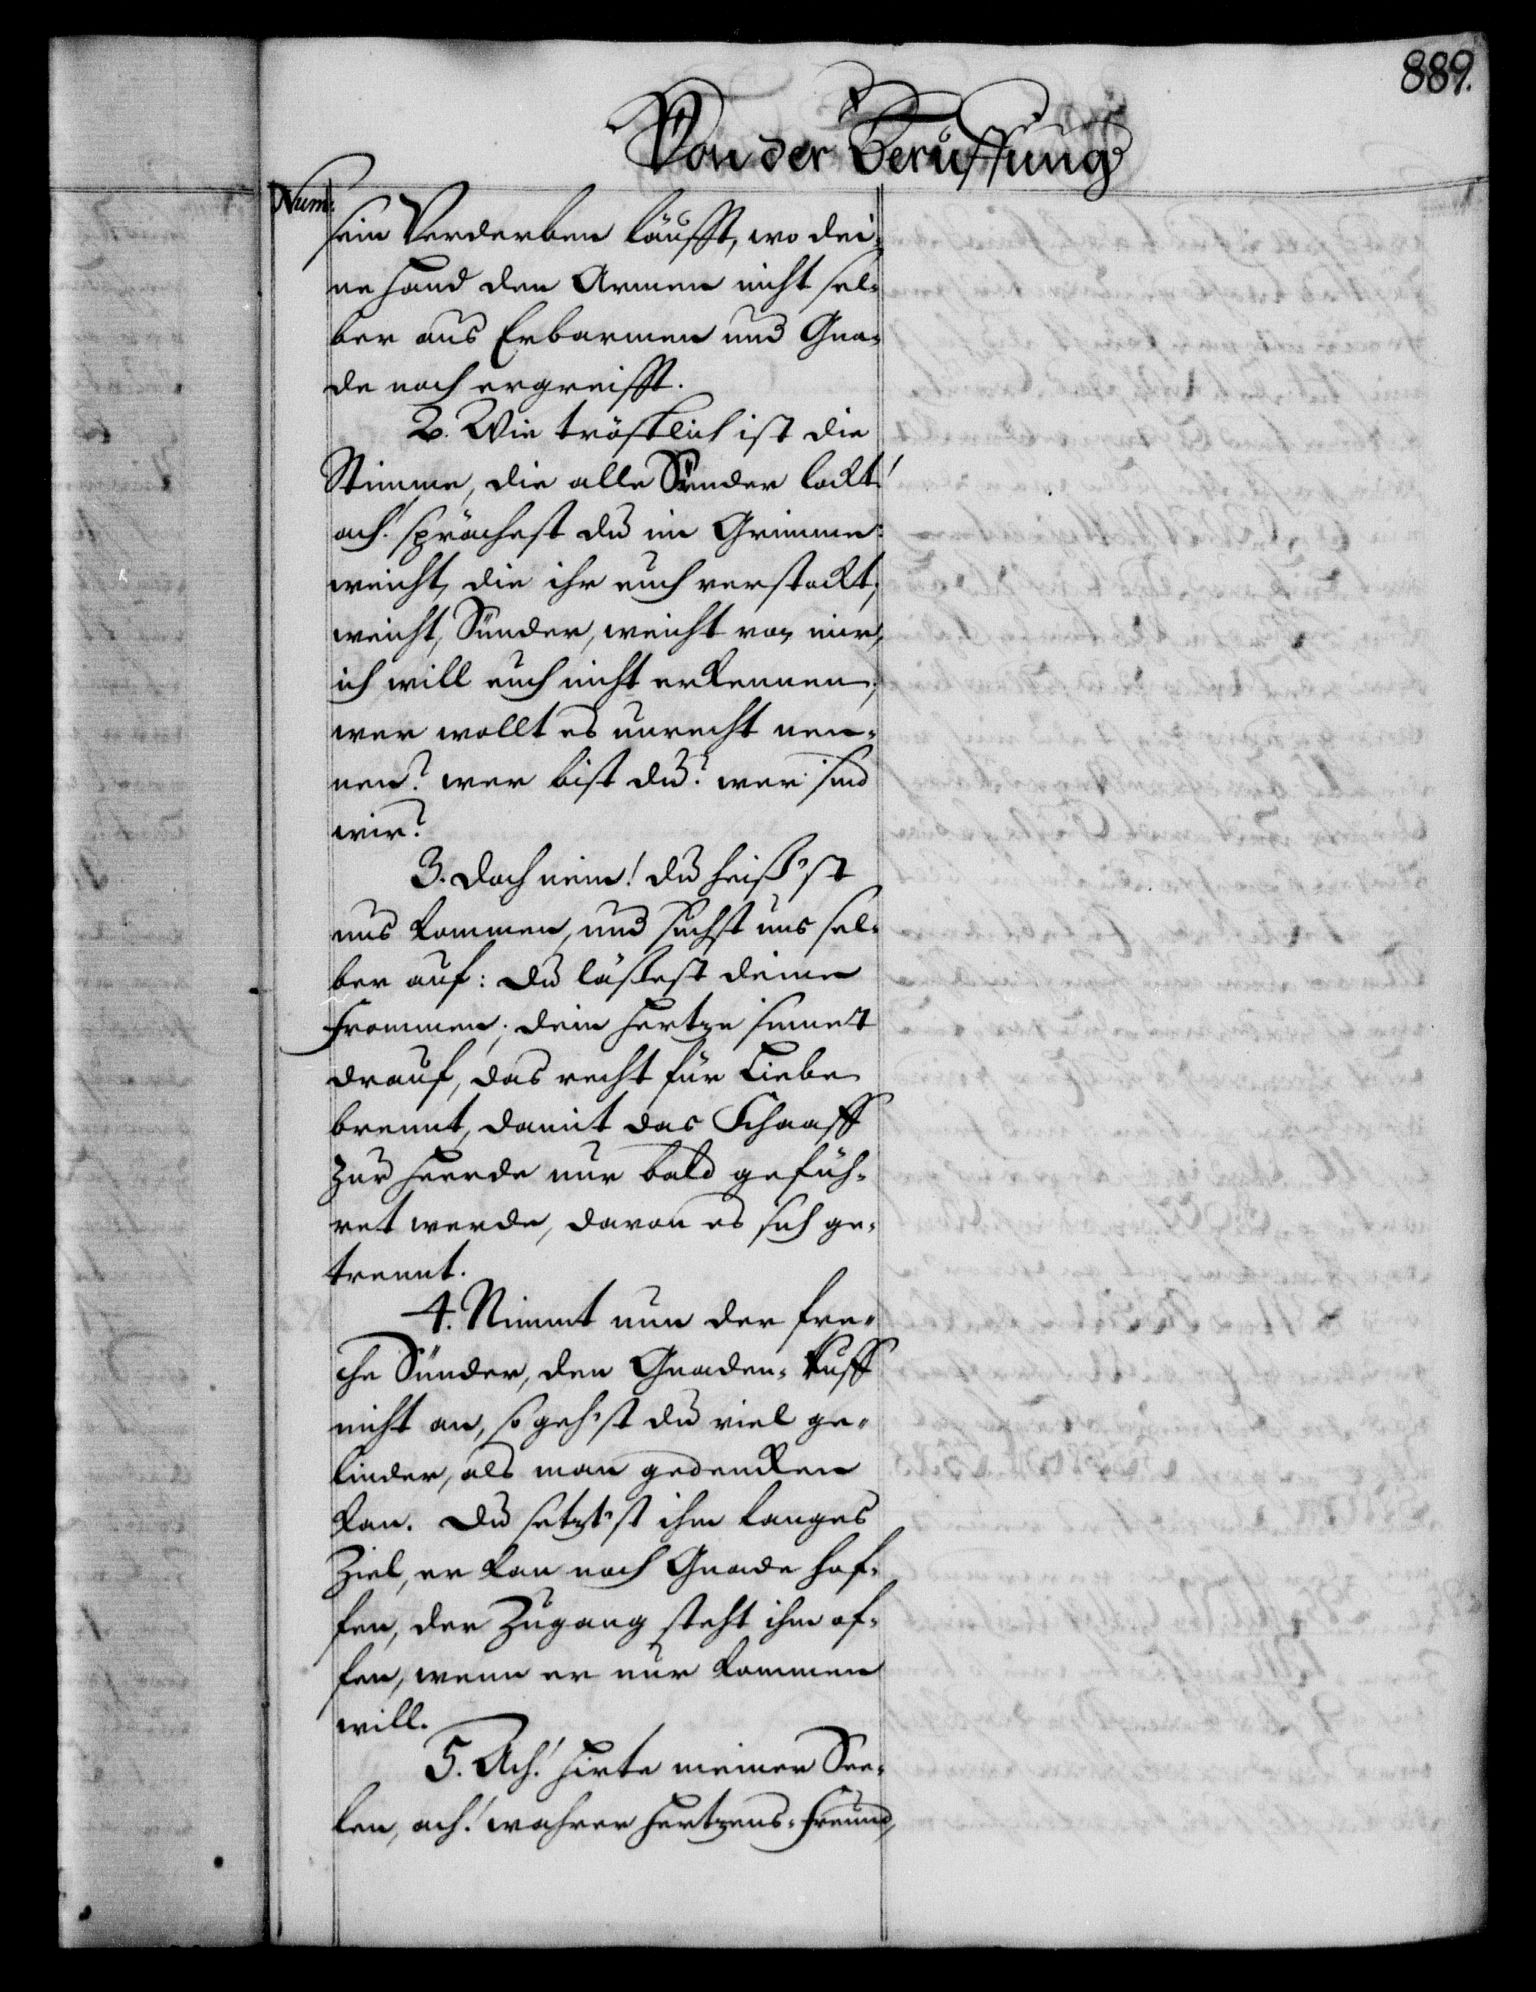 889.
Von der Beruffung
Num:
sein Verderben läufft, wo dei-
ne Hand den Armen nicht sel-
ber aus Erbarmen und Gna-
de noch ergreifft.
2. Wie tröstlich ist die
Stimme, die alle Sünder lockt!
ach! sprächest du im Grimme:
weicht, die ihr euch verstockt,
weicht, Sünder, weicht von mir,
ich will euch nicht erkennen;
wer wollt es unrecht nen-
nen? wer bist du? wer sind
wir?
3. Doch nein! du heiß'st
uns kommen, und suchst uns sel-
ber auf: du lässest deine
Frommen; dein Hertze sinnet
drauf, das recht für Liebe
brennt, damit das Schaaff
zur Heerde nur bald gefüh-
ret werde, davon es sich ge-
trennt.
4. Nimmt nun der fre-
che Sünder, den Gnaden-Ruff
nicht an, so geh'st du viel ge-
linder, als man gedencken
kan. Du setz'st ihm langes
Ziel, er kan noch Gnade hof-
fen, der Zugang steht ihm of-
fen, wenn er nur kommen
will.
5. Ach! Hirte meiner See-
len, ach! wahrer Hertzens-Freund,